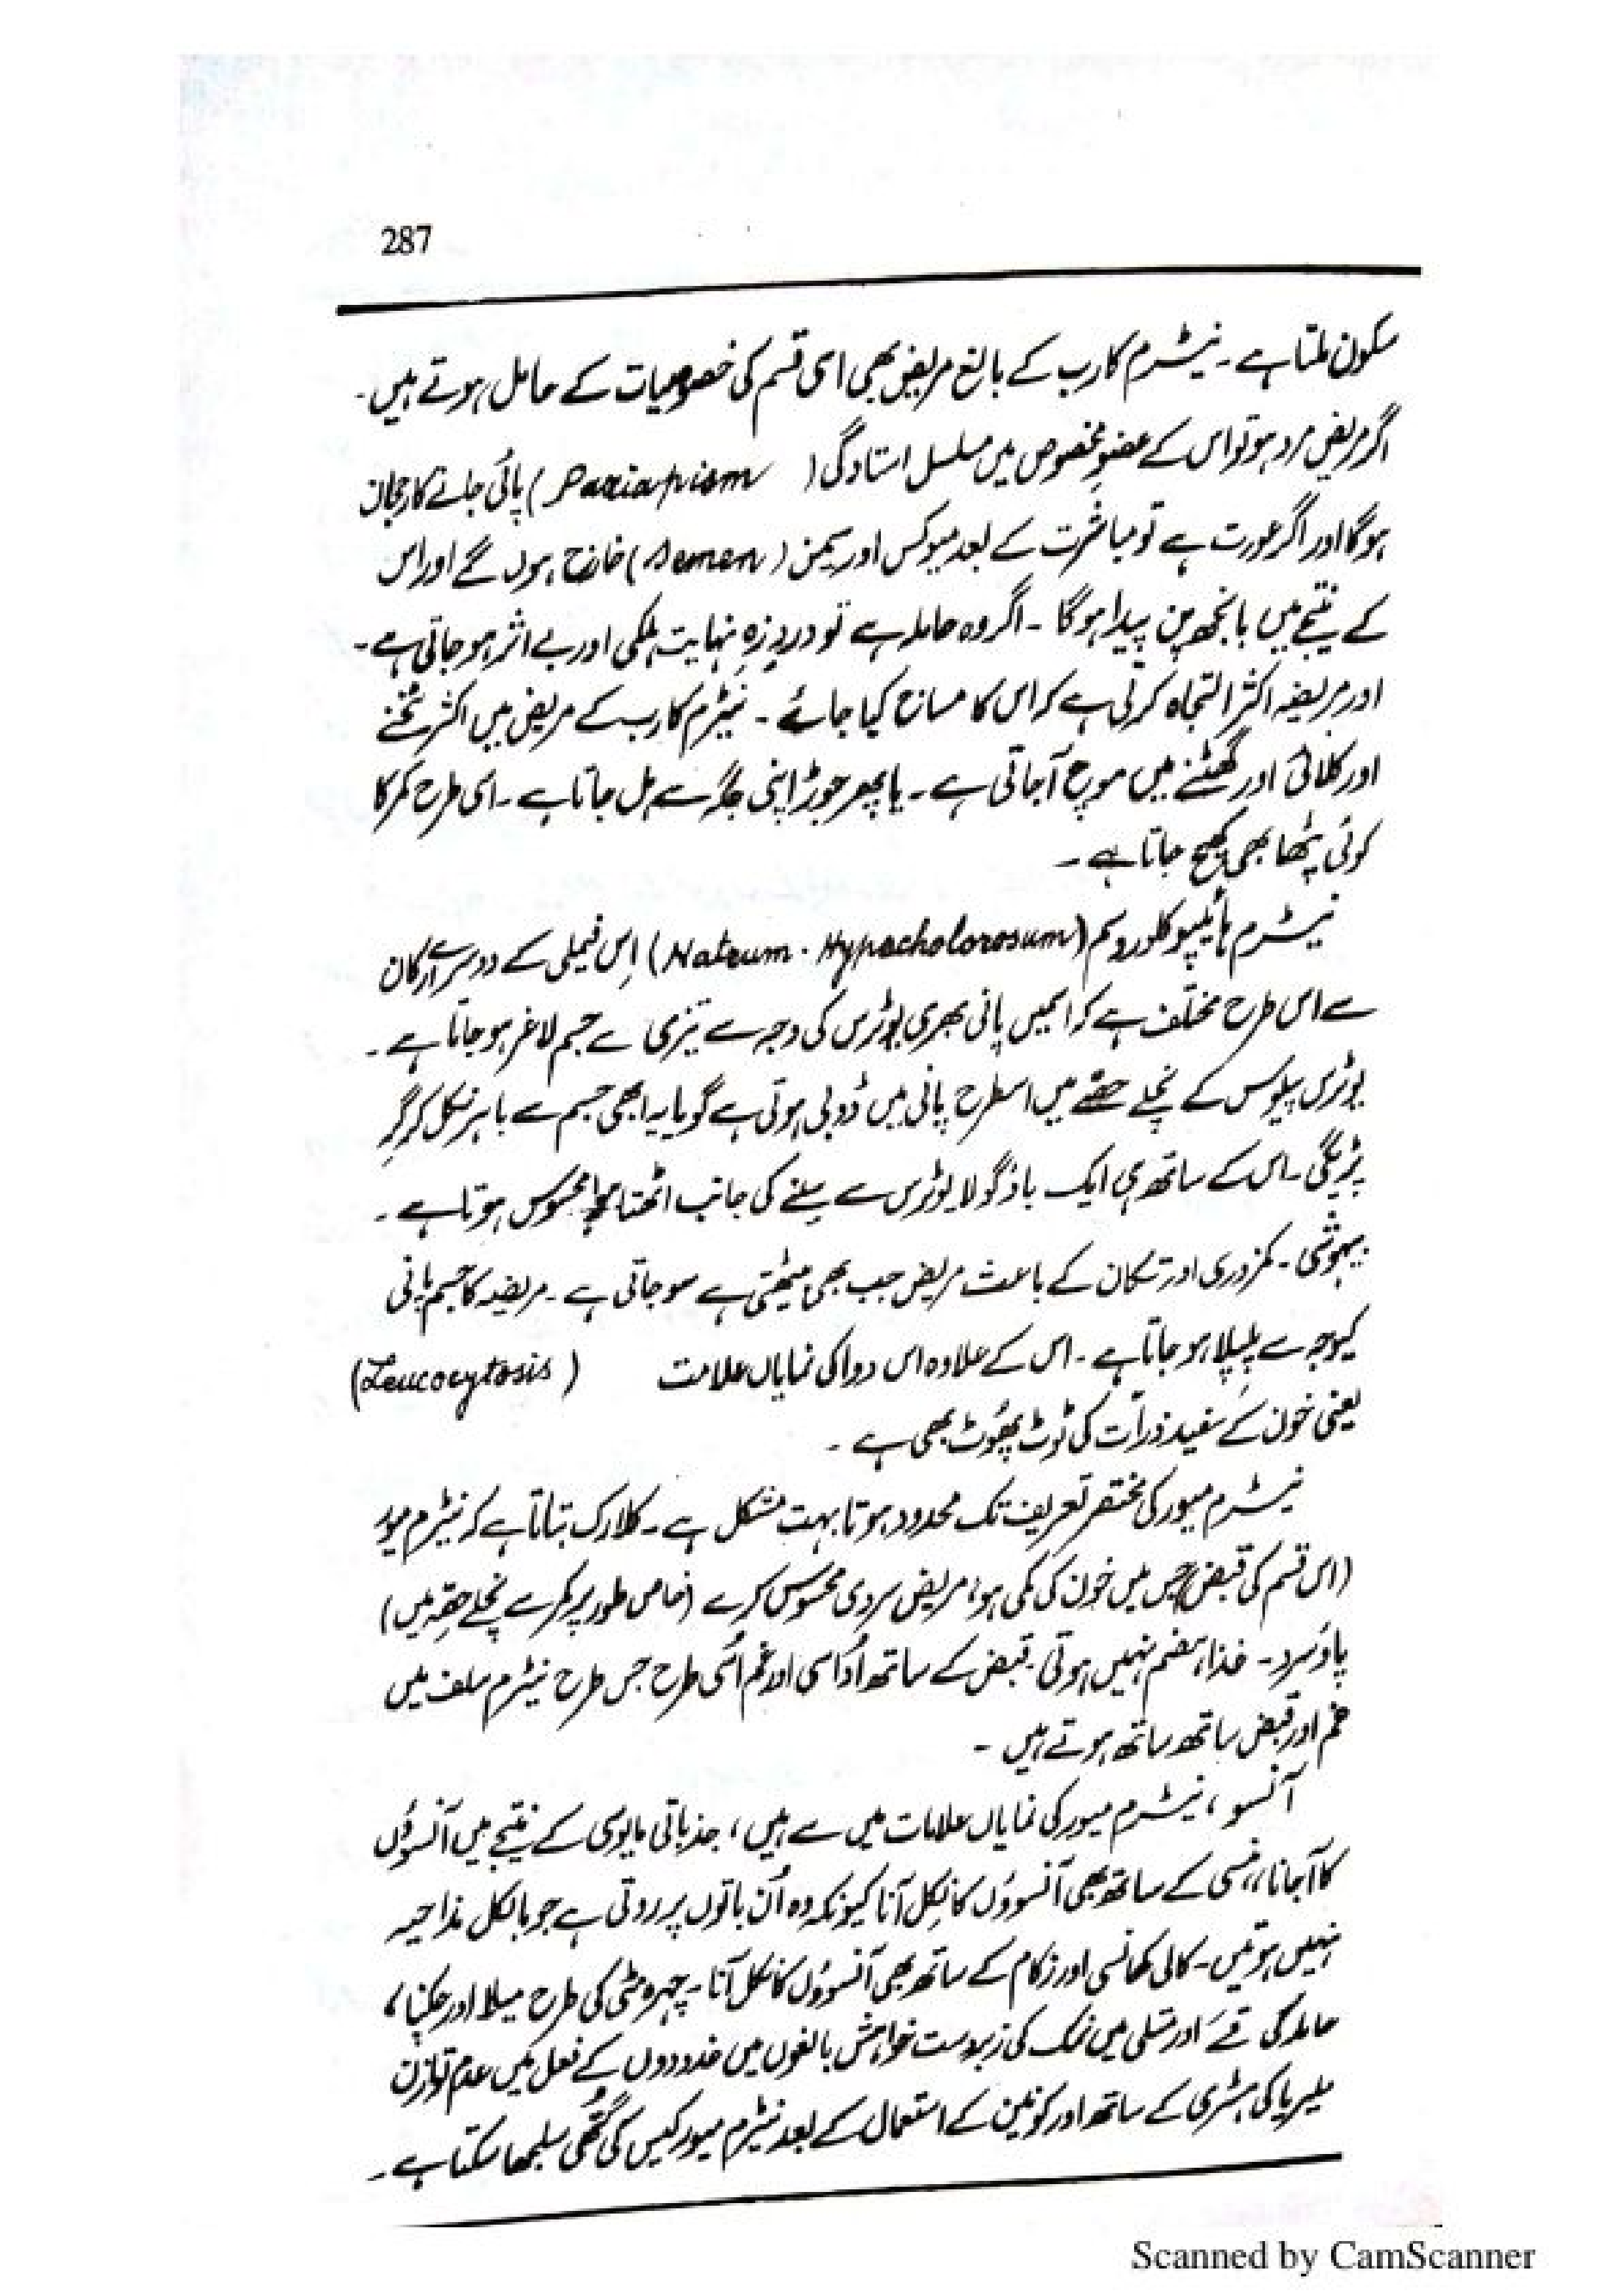 287
سکون ملتا ہے ۔ نیٹرم کارب کے بالغ مریض بھی اسی قسم کی خصوصیات کے حامل ہوتے ہیں ۔
اگر مریض مرد ہو تو اس کے عضوِ مخصوص میں مسلسل استادگی ( Pariapism ) پائی جانے کا رجحان
ہوگا اور اگر عورت ہے تو مباشرت کے بعد میوکس اور سیمن ( Semen ) خارج ہوں گے اور اس
کے نتیجے میں بانجھ پن پیدا ہوگا ۔ اگر وہ حاملہ ہے تو دردِ زہ نہایت ہلکی اور بے اثر ہو جاتی ہے ۔
اور مریضہ اکثر التجاہ کرتی ہے کہ اس کا مساج کیا جائے ۔ نیٹرم کارب کے مریض میں اکثر ٹخنے
اور کلائی اور گھٹنے میں موچ آجاتی ہے ۔ یا پھر جوڑ اپنی جگہ سے ہل جاتا ہے ۔ اسی طرح کمر کا
کوئی پٹھا بھی کھچ جاتا ہے ۔
نیٹرم ہائیپوکلوروسم (Natrum . Hypocholorosum) اِس فیملی کے دوسرے ارکان
سے اس طرح مختلف ہے کہ اسمیں پانی بھری یوٹرس کی وجہ سے تیزی سے جسم لاغر ہو جاتا ہے ۔
یوٹرس پیلوس کے نچلے حصّے میں اسطرح پانی میں ڈوبی ہوتی ہے گویا یہ ابھی جسم سے باہر نکل کر گِر
پڑیگی ۔ اس کے ساتھ ہی ایک باؤ گولا یوٹرس سے سینے کی جانب اٹھتا ہوا محسوس ہوتا ہے ۔
بیہوشی ۔ کمزوری اور تکان کے باعث مریض جب بھی بیٹھتی ہے سو جاتی ہے ۔ مریضہ کا جسم پانی
کیوجہ سے پلپلا ہو جاتا ہے ۔ اس کے علاوہ اس دوا کی نمایاں علامت ( Leucocytosis )
یعنی خون کے سفید ذرات کی ٹوٹ پھُوٹ بھی ہے ۔
نیٹرم میور کی مختصر تعریف تک محدود ہوتا بہت مشکل ہے ۔ کلارک بتاتا ہے کہ نیٹرم میور
(اس قسم کی قبض جس میں خون کی کمی ہو، مریض سردی محسوس کرے (خاص طور پر کمر سے نچلے حصّہ میں)
پاؤں سرد ۔ غذا ہضم نہیں ہوتی ۔ قبض کے ساتھ اُداسی اور غم اُسی طرح جس طرح نیٹرم سلف میں
غم اور قبض ساتھ ساتھ ہوتے ہیں ۔
آنسو ، نیٹرم میور کی نمایاں علامات میں سے ہیں ، جذباتی مایوسی کے نتیجے میں آنسوؤں
کا آجانا، ہنسی کے ساتھ بھی آنسووُں کا نکل آنا کیونکہ وہ اُن باتوں پر روتی ہے جو بالکل مذاحیہ
نہیں ہوتیں ۔ کالی کھانسی اور زکام کے ساتھ بھی آنسووُں کا نکل آنا ۔ چہرہ مٹی کی طرح میلا اور چکنا ،
حاملہ کی قے اور متلی میں نمک کی زبردست خواہش بالغوں میں غدودوں کے فعل میں عدم توازن
ملیریا کی ہسٹری کے ساتھ اور کونین کے استعمال کے بعد نیٹرم میور کیس کی گُتھی سلجھا سکتا ہے ۔
Scanned by CamScanner